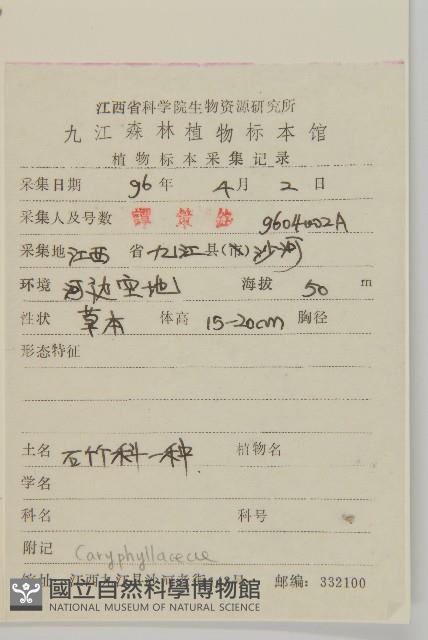 江西省科学院生物资源研究所
九江森林植物标本馆
植物标本采集记录
采集日期 96 年 4 月 2 日
采集人及号数 譚策銘 9604002A
采集地 江西 省 九江 县(市) 沙河
环境 河边空地 海拔 50 m
性状 草本 体高 15-20cm 胸径
形态特征
土名 石竹科一种 植物名
学名
科名 科号
附记 Caryphyllaceae
江西九江县沙河 邮编: 332100
國立自然科學博物館
NATIONAL MUSEUM OF NATURAL SCIENCE